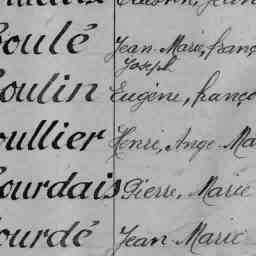 oulé Jean Marie, franç
Joseph
oulin Eugène, franço
oullier Henri, Ange Ma
ourdais Pierre, Marie
ourdé Jean Marie